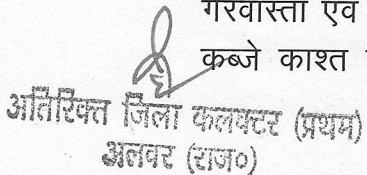 गैरवास्ता एवं
कब्जे काश्त
अतिरिक्त जिला कलक्टर (प्रथम)
अलवर (राज०)